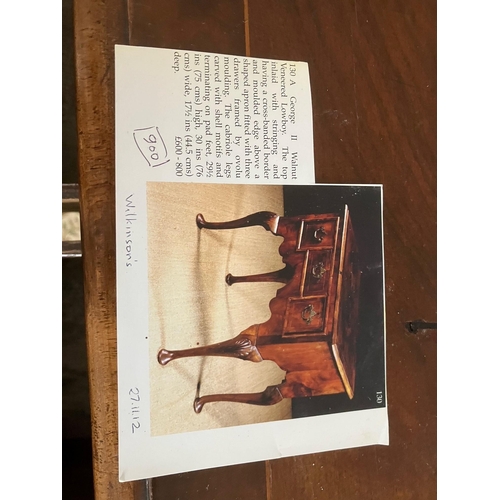 130 A George II Walnut
Veneered Lowboy. The top
inlaid with stringing and
having a cross-banded border
and moulded edge above a
shaped apron fitted with three
drawers framed by ovolu
moulding. The cabriole legs
carved with shell motifs and
terminating on pad feet, 29½
ins (75 cms) high, 30 ins (76
cms) wide, 17½ ins (44.5 cms)
deep.
£600 - 800
900
130
Wilkinson's
27.11.12